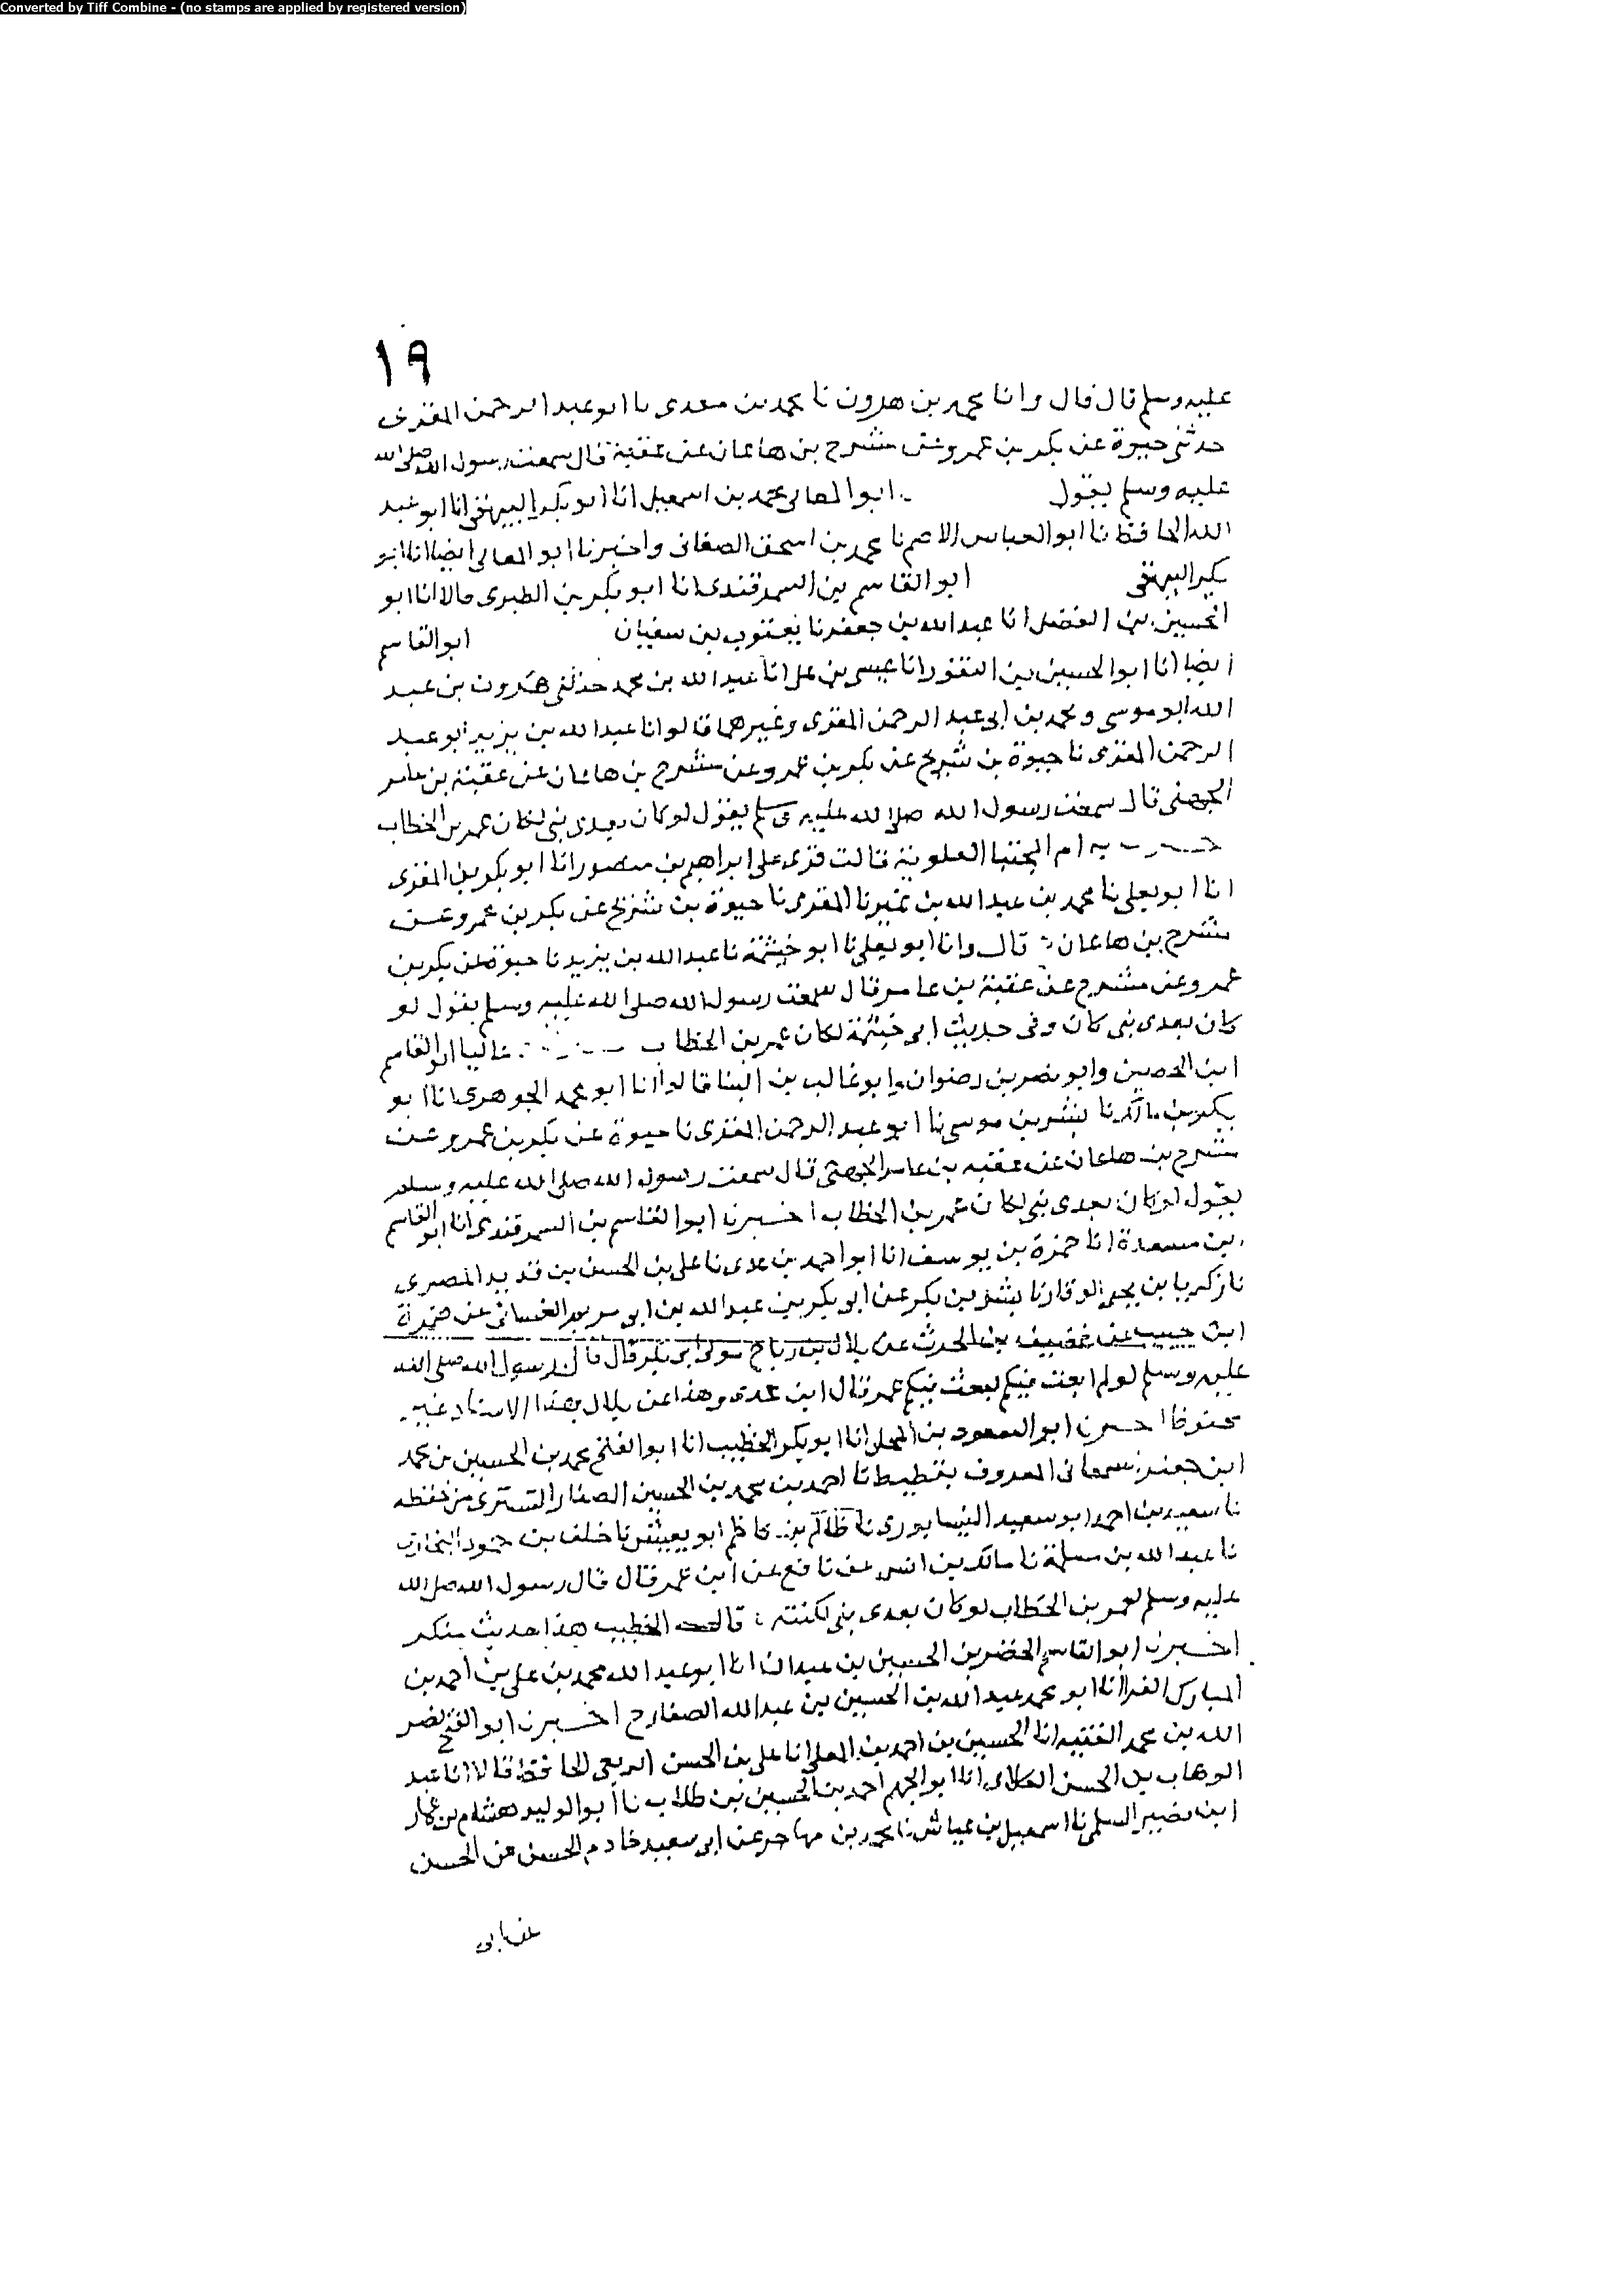 Converted by Tiff Combine - (no stamps are applied by registered version)
١٩
عليه وسلم قال قال وانا محمد بن هرون نا محمد بن معدى نا ابو عبد الرحمن المقرى
حدثنى حيوة عن بكر بن عمرو عن مشرح بن هاعان عن عقبة قال سمعت رسول الله صلى الله
عليه وسلم يقول ابو المعالى محمد بن اسمعيل انا ابو بكر البيهقى انا ابو عبد
الله الحافظ نا ابو العباس الاصم نا محمد بن اسحق الصغانى واخبرنا ابو المعالى ايضا انا ابو
بكر البيهقى ابو القاسم بن السمرقندى انا ابو بكر بن الطبرى قالا انا ابو
الحسين بن الفضل انا عبد الله بن جعفر نا يعقوب بن سفيان ابو القاسم
ايضا انا ابو الحسين بن النقور انا عيسى بن على انا عبد الله بن محمد حدثنى هرون بن عبد
الله ابو موسى ومحمد بن ابى عبد الرحمن المقرى وغيرهما قالوا نا عبد الله بن يزيد ابو عبد
الرحمن المقرى نا حيوة بن شريح عن بكر بن عمرو عن مشرح بن هاعان عن عقبة بن عامر
الجهنى قال سمعت رسول الله صلى الله عليه وسلم يقول لو كان بعدى نبى لكان عمر بن الخطاب
به ام المجتبا العلوية قالت قرى على ابراهيم بن منصور انا ابو بكر بن المقرى
انا ابو يعلى نا محمد بن عبد الله بن نمير نا المقرى نا حيوة بن شريح عن بكر بن عمرو عن
مشرح بن هاعان قال وانا ابو يعلى نا ابو خيثمة نا عبد الله بن يزيد نا حيوة عن بكر بن
عمرو عن مشرح عن عقبة بن عامر قال سمعت رسول الله صلى الله عليه وسلم يقول لو
كان بعدى نبى كان وفى حديث ابى خيثمة لكان عمر بن الخطاب ابو القاسم
ابن الحصين وابو نصر بن رضوان وابو غالب بن البنا قالوا انا ابو محمد الجوهرى انا ابو
بكر بن مالك نا بشر بن موسى نا ابو عبد الرحمن المقرى نا حيوة عن بكر بن عمرو عن
مشرح بن هاعان عن عقبه بن عامر الجهنى قال سمعت رسول الله صلى الله عليه وسلم
يقول لو كان بعدى نبى لكان عمر بن الخطاب اخبرنا ابو القاسم بن السمرقندى انا ابو القاسم
بن مسعدة انا حمزة بن يوسف انا ابو احمد بن عدى نا على بن الحسن بن قديد المصرى
نا زكريا بن يحيى الوقار نا بشر بن بكر عن ابو بكر بن عبد الله بن ابى مريم الغسانى عن ضمرة
ابن حبيب عن غضيف بن الحرث عن بلال بن رباح مولى ابى بكر قال قال رسول الله صلى الله
عليه وسلم لو لم ابعث فيكم لبعث فيكم عمر قال ابن عدى وهذا عن بلال بهذا الاسناد غير
محفوظ اخبرنا ابو السعود بن المجلى انا ابو بكر الخطيب انا ابو الفتح محمد بن الحسين بن محمد
ابن جعفر المعروف بقطيط نا احمد بن محمد بن الحسين الصفار التسترى من حفظه
نا سعيد بن احمد ابو سعيد النيسابورى نا بن ابو نا خلف بن
نا عبد الله بن مسلمة نا مالك بن انس عن نافع عن ابن عمر قال قال رسول الله صلى الله
عليه وسلم لعمر بن الخطاب لو كان بعدى نبى لكنته قال الخطيب هذا حديث منكر
اخبرنا ابو القاسم الخضر بن الحسين بن عبدان انا ابو عبد الله محمد بن على بن احمد بن
المبارك الفرا انا ابو محمد عبد الله بن الحسين بن عبد الله الصفار ح اخبرنا ابو الفتح نصر
الله بن محمد الفقيه انا الحسين بن احمد بن المعلى انا على بن الحسن الربعى الحافظ قالا انا عبد
الوهاب بن الحسن الكلابى انا ابو الجهم احمد بن الحسين بن طلاب نا ابو الوليد هشام بن عمار
ابن نصير السلمى نا اسمعيل بن عياش نا محمد بن مهاجر عن ابى سعيد خادم الحسن عن الحسن
عن ابى